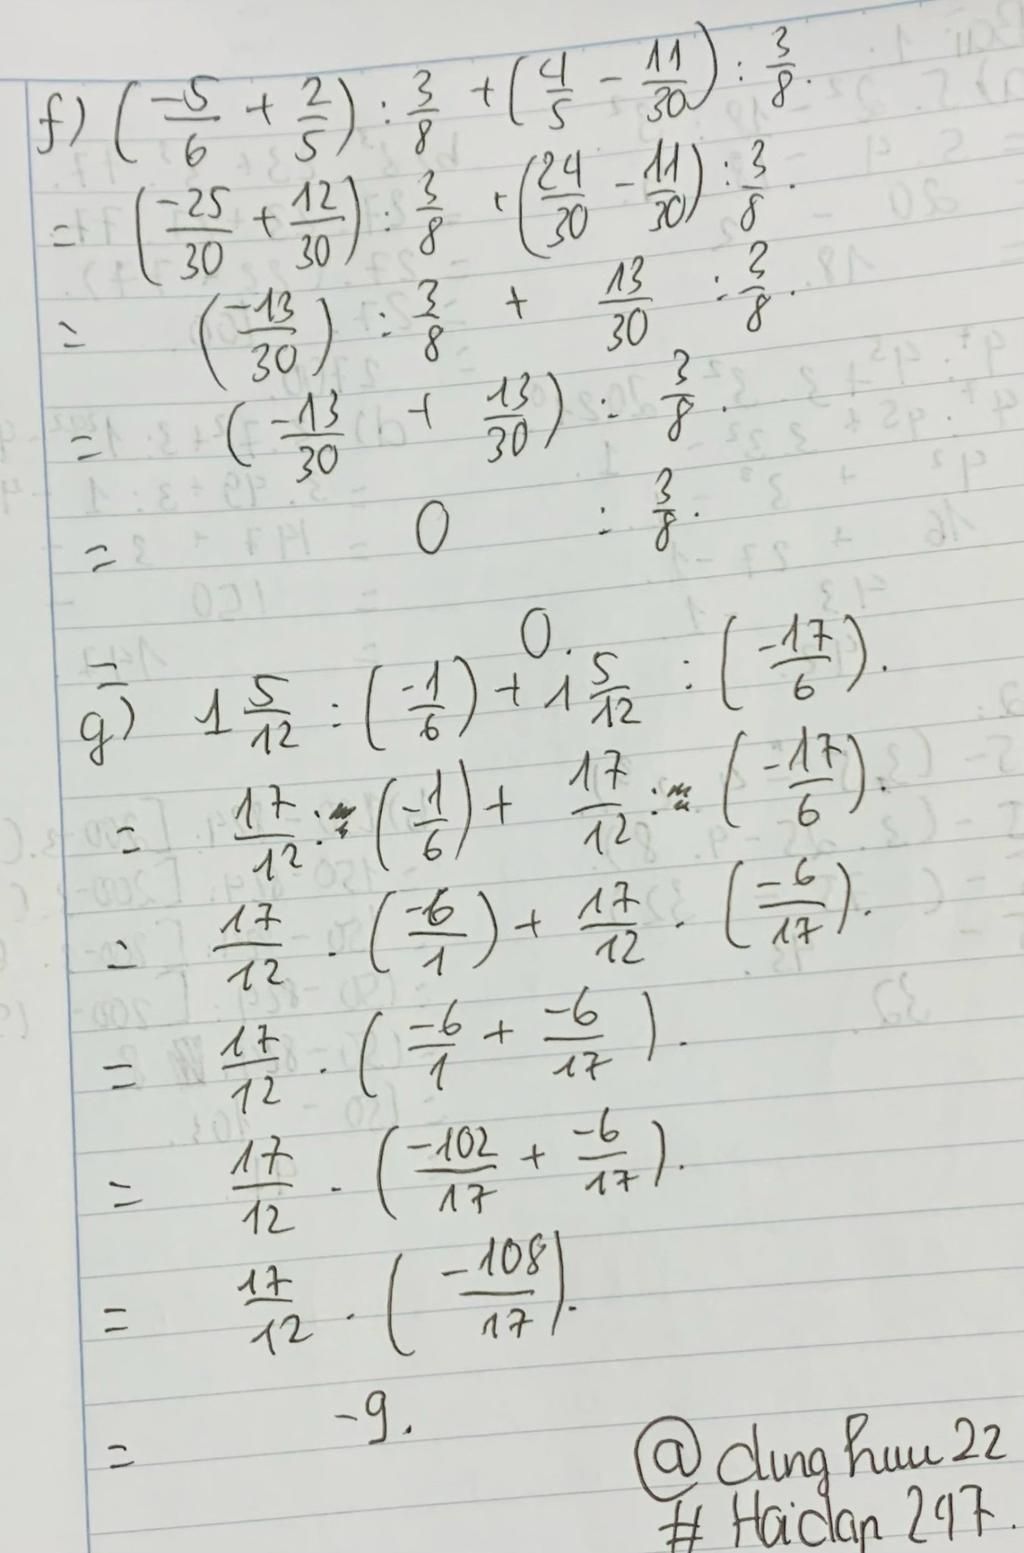 f) (-5/6 + 2/5) : 3/8 + (4/5 - 11/30) : 3/8.
= (-25/30 + 12/30) : 3/8 + (24/30 - 11/30) : 3/8.
= (-13/30) : 3/8 + 13/30 : 3/8.
= (-13/30 + 13/30) : 3/8.
= 0 : 3/8.
= 0.
g) 1 5/12 : (-1/6) + 1 5/12 : (-17/6).
= 17/12 : (-1/6) + 17/12 : (-17/6).
= 17/12 . (-6/1) + 17/12 . (-6/17).
= 17/12 . (-6/1 + -6/17).
= 17/12 . (-102/17 + -6/17).
= 17/12 . (-108/17).
= -9.
@dunghuu22
# Haidan 247.